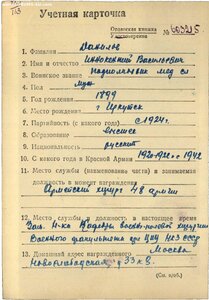 Учетная карточка
Орденская книжка
Удостоверение №
1. Фамилия Данилов
2. Имя и отчество Иннокентий Васильевич
3. Воинское звание подполковник мед сл
4. Пол муж
5. Год рождения 1899
6. Место рождения г Иркутск
7. Партийность (с какого года) с 1924 г.
8. Образование высшее
9. Национальность русский
10. С какого года в Красной Армии 1920-1922 г с 1942
11. Место службы (наименование части) и занимаемая
должность в момент награждения
Армейский хирург 48 армии
12. Место службы и должность в настоящее время
Зам. Н-ка Кафедры военно-полевой хирургии
Военного факультета при ЦИУ НКЗ СССР
13. Домашний адрес награжденного Москва
(См. н/об.)